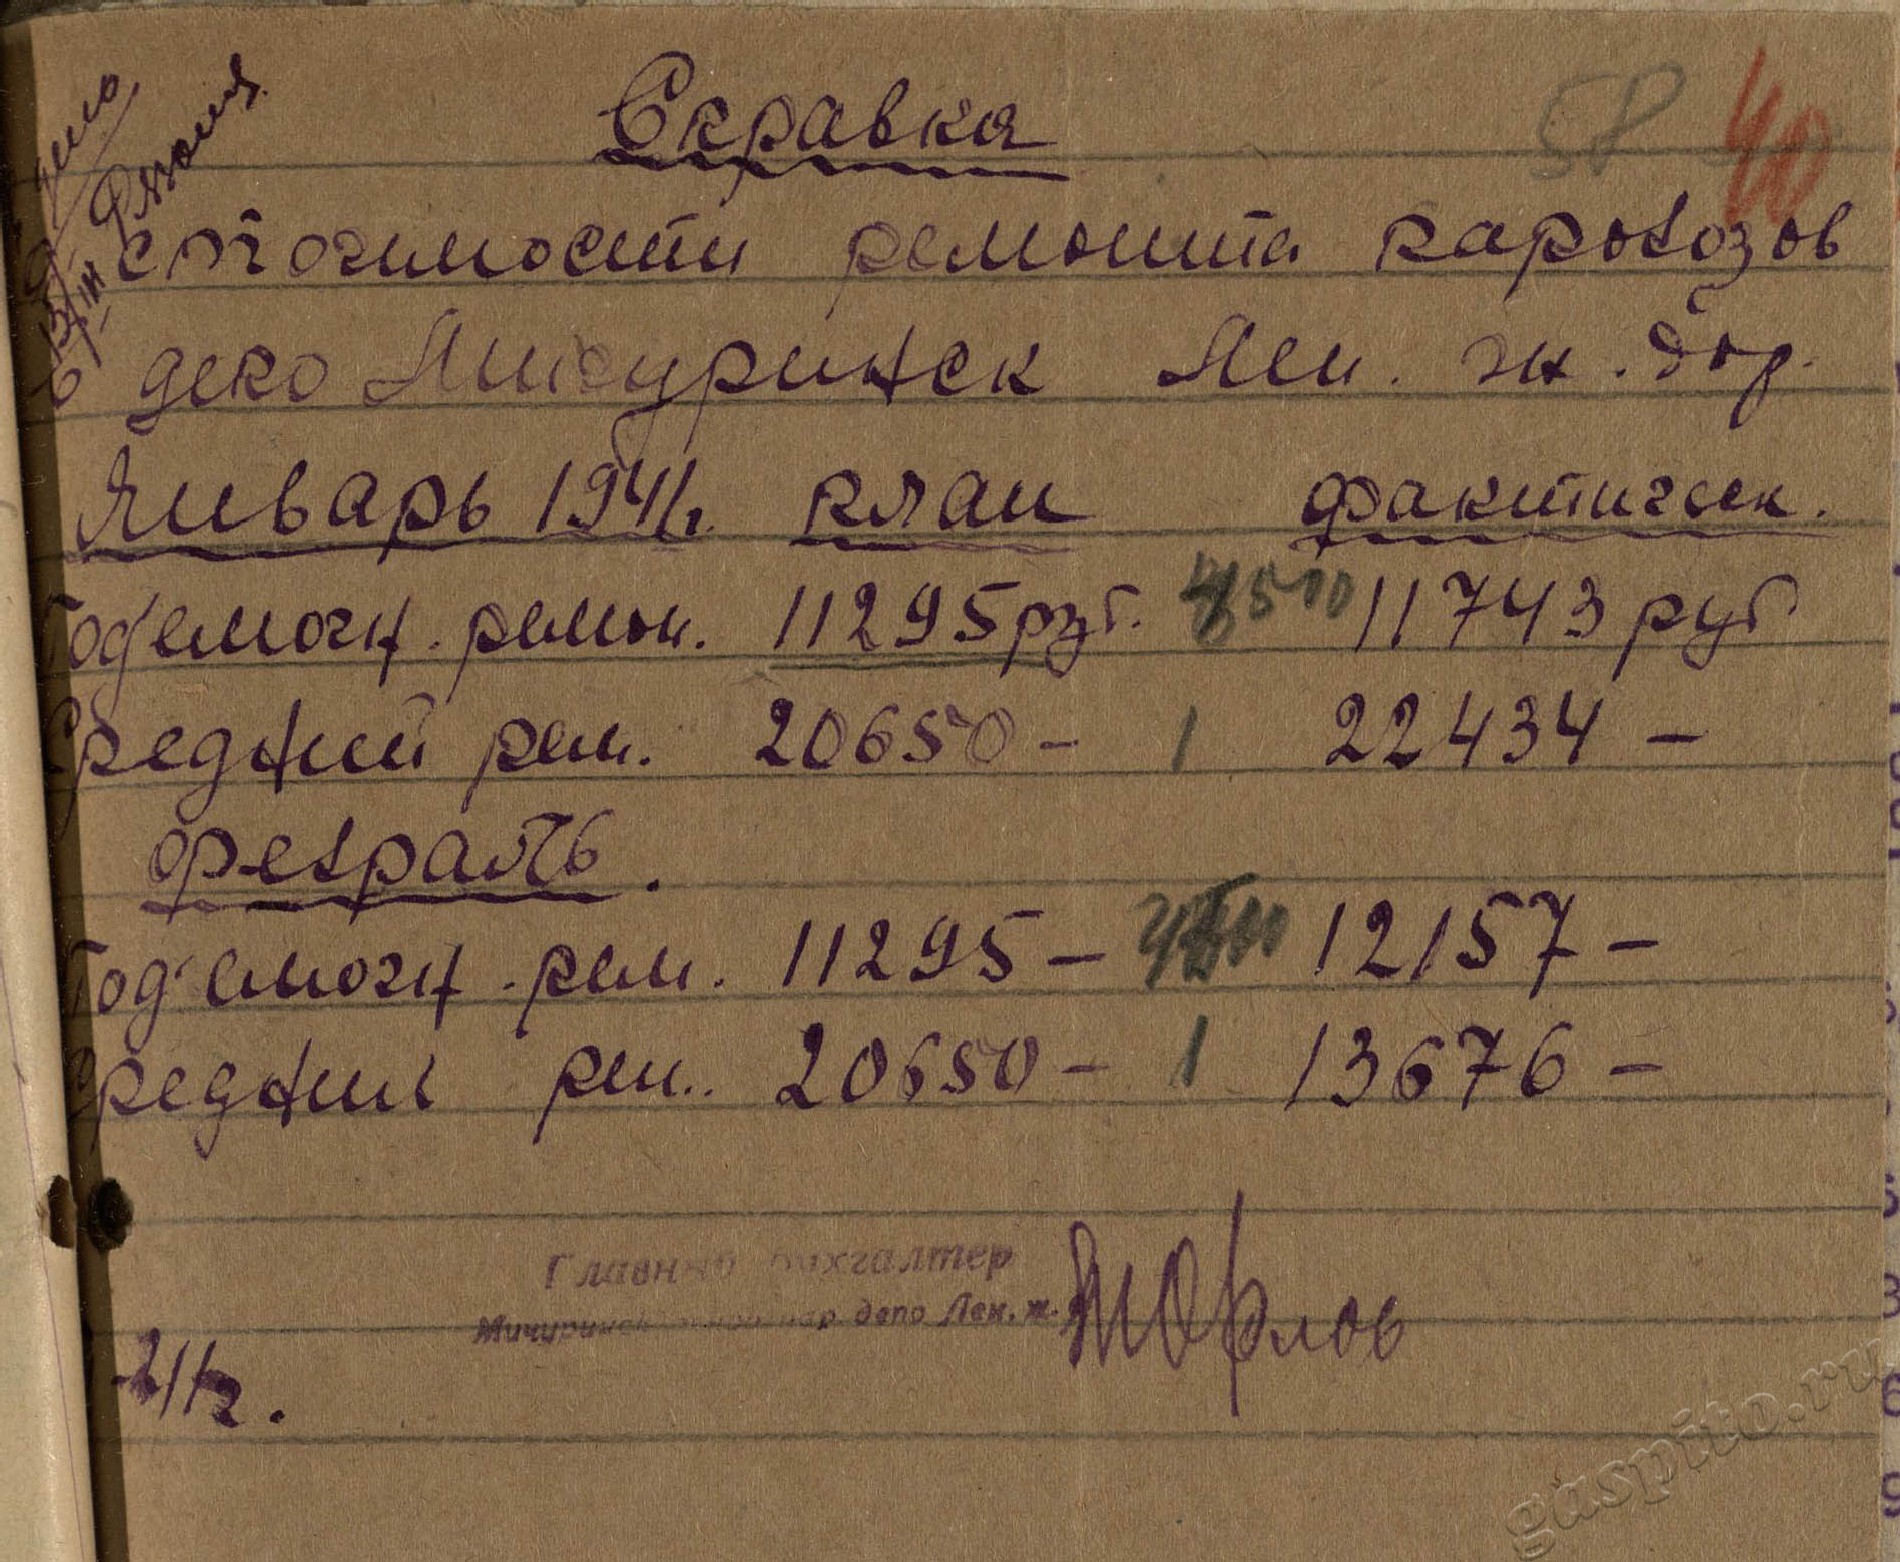 58 40
Справка
стоимости ремонта паровозов
депо Мичуринск Лен. ж. дор.
Январь 1941г. план фактическ.
Под'емочн. ремон. 11295 руб. 11743 руб
Средний рем. 20650 - 1 22434 -
февраль.
Под'емочн. рем. 11295 - 12157 -
Средний рем. 20650 - 1 13676 -
Главный бухгалтер
Мичуринск депо Лен. ж. Орлов
gaspito.ru